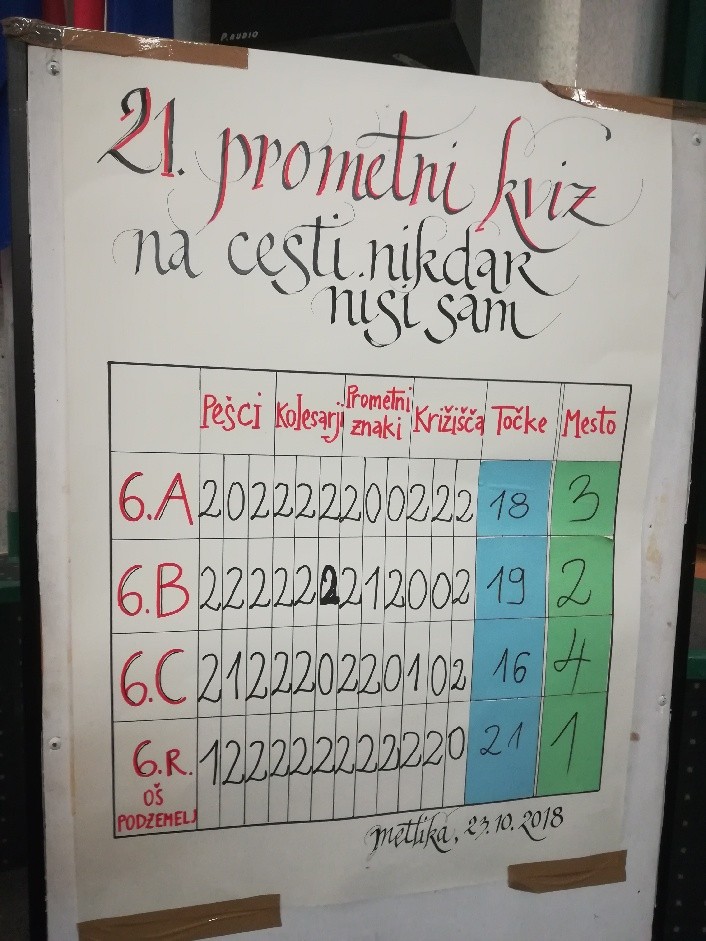 P.AUDIO
21. prometni kviz
na cesti nikdar
nisi sam
Pešci Kolesarji Prometni znaki Križišča Točke Mesto
6.A 2 0 2 2 2 2 2 0 0 2 2 2 18 3
6.B 2 2 2 2 2 2 2 1 2 0 0 2 19 2
6.C 2 1 2 2 2 0 2 2 0 1 0 2 16 4
6.R. 1 2 2 2 2 2 2 2 2 2 2 0 21 1
OŠ
PODZEMELJ
Metlika, 23.10.2018